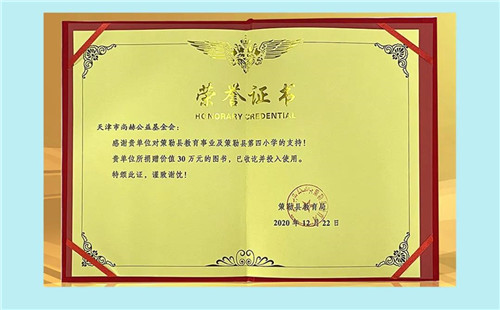 荣誉证书
HONORARY CREDENTIAL
天津市尚赫公益基金会：
感谢贵单位对策勒县教育事业及策勒县第四小学的支持！
贵单位所捐赠价值 30 万元的图书，已收讫并投入使用。
特颁此证，谨致谢忱！
策勒县教育局
2020 年 12 月 22 日